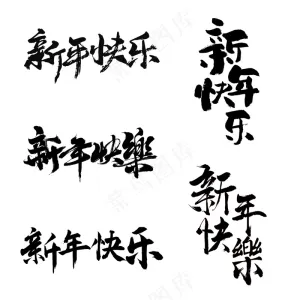 新年快乐
新年快樂
新年快乐
新年
快乐
新年
快樂